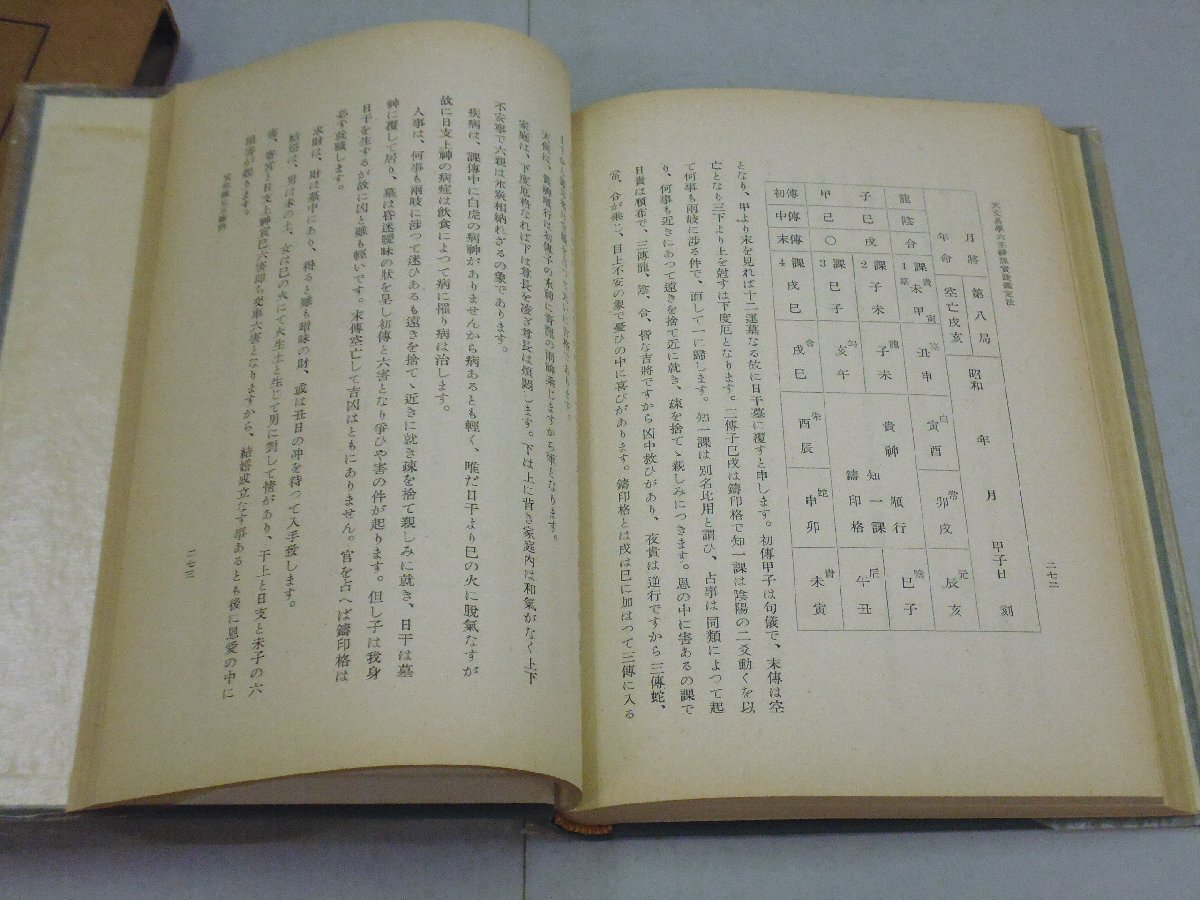 二七二
月將 第八局 昭和 年 月 甲子日 刻
年命 空亡戌亥
龍 陰 合
子 巳 戌
甲 己 ○
初傳 中傳 末傳
1課 未甲
2課 子未
3課 巳子
4課 戌巳
丑申
寅酉
卯戌
辰亥
子未
亥午
戌巳
酉辰
申卯
未寅
午丑
巳子
貴神 順行
知一課
鑄印格
となり、甲より未を見れば十二運墓なる故に日干墓に覆すと申します。初傳甲子は旬儀で、末傳は空
亡となり三下より上を尅すは下度厄となります。三傳子巳戌は鑄印格で知一課は陰陽の二爻動くを以
て何事も兩岐に渉る件で、而して一に歸します。知一課は別名比用と謂ひ、占事は同類によつて起
り、何事も近きにあつて遠きを捨て近に就き、疎を捨てゝ親しみにつきます。恩の中に害あるの課で
日貴は順布で、三傳龍、陰、合、皆な吉將ですから凶中救ひがあり、夜貴は逆行ですから三傳蛇、
合が乘じ、目上不安の象で憂ひの中に喜びがあります。鑄印格とは戌は巳に加はつて三傳に入る
家庭は、下度厄格なれば下は尊長を凌ぎ尊長は煩悶します。下は上に背き家庭內は和氣がなく上下
不安寧で六親は氷炭相納れざるの象であります。
疾病は、課傳中に白虎の病神がありませんから病あるとも輕く、唯だ日干より巳の火に脫氣なすが
故に日支上神の病症は飮食によつて病に罹り病は治します。
人事は、何事も兩岐に渉つて迷ひあるも遠きを捨てゝ近きに就き疎を捨て親しみに就き、日干は墓
神に覆して居り、墓は昏迷曖昧の狀を呈し初傳と六害となり爭ひや害の件が起ります。但し子は我身
日干を生するが故に凶と雖も輕いです。末傳空亡して吉凶はともにありません。官を占へば鑄印格は
必す就職します。
求財は、財は墓中にあり、得ると雖も暗昧の財、或は丑日の冲を待つて入手致します。
結婚は、男は未の土、女は巳の火にて火生土と生じて男に對して情があり、干上と日支と未子の六
害、
結婚成立なす事あるとも後に恩愛の中に
が起ります。
二七三